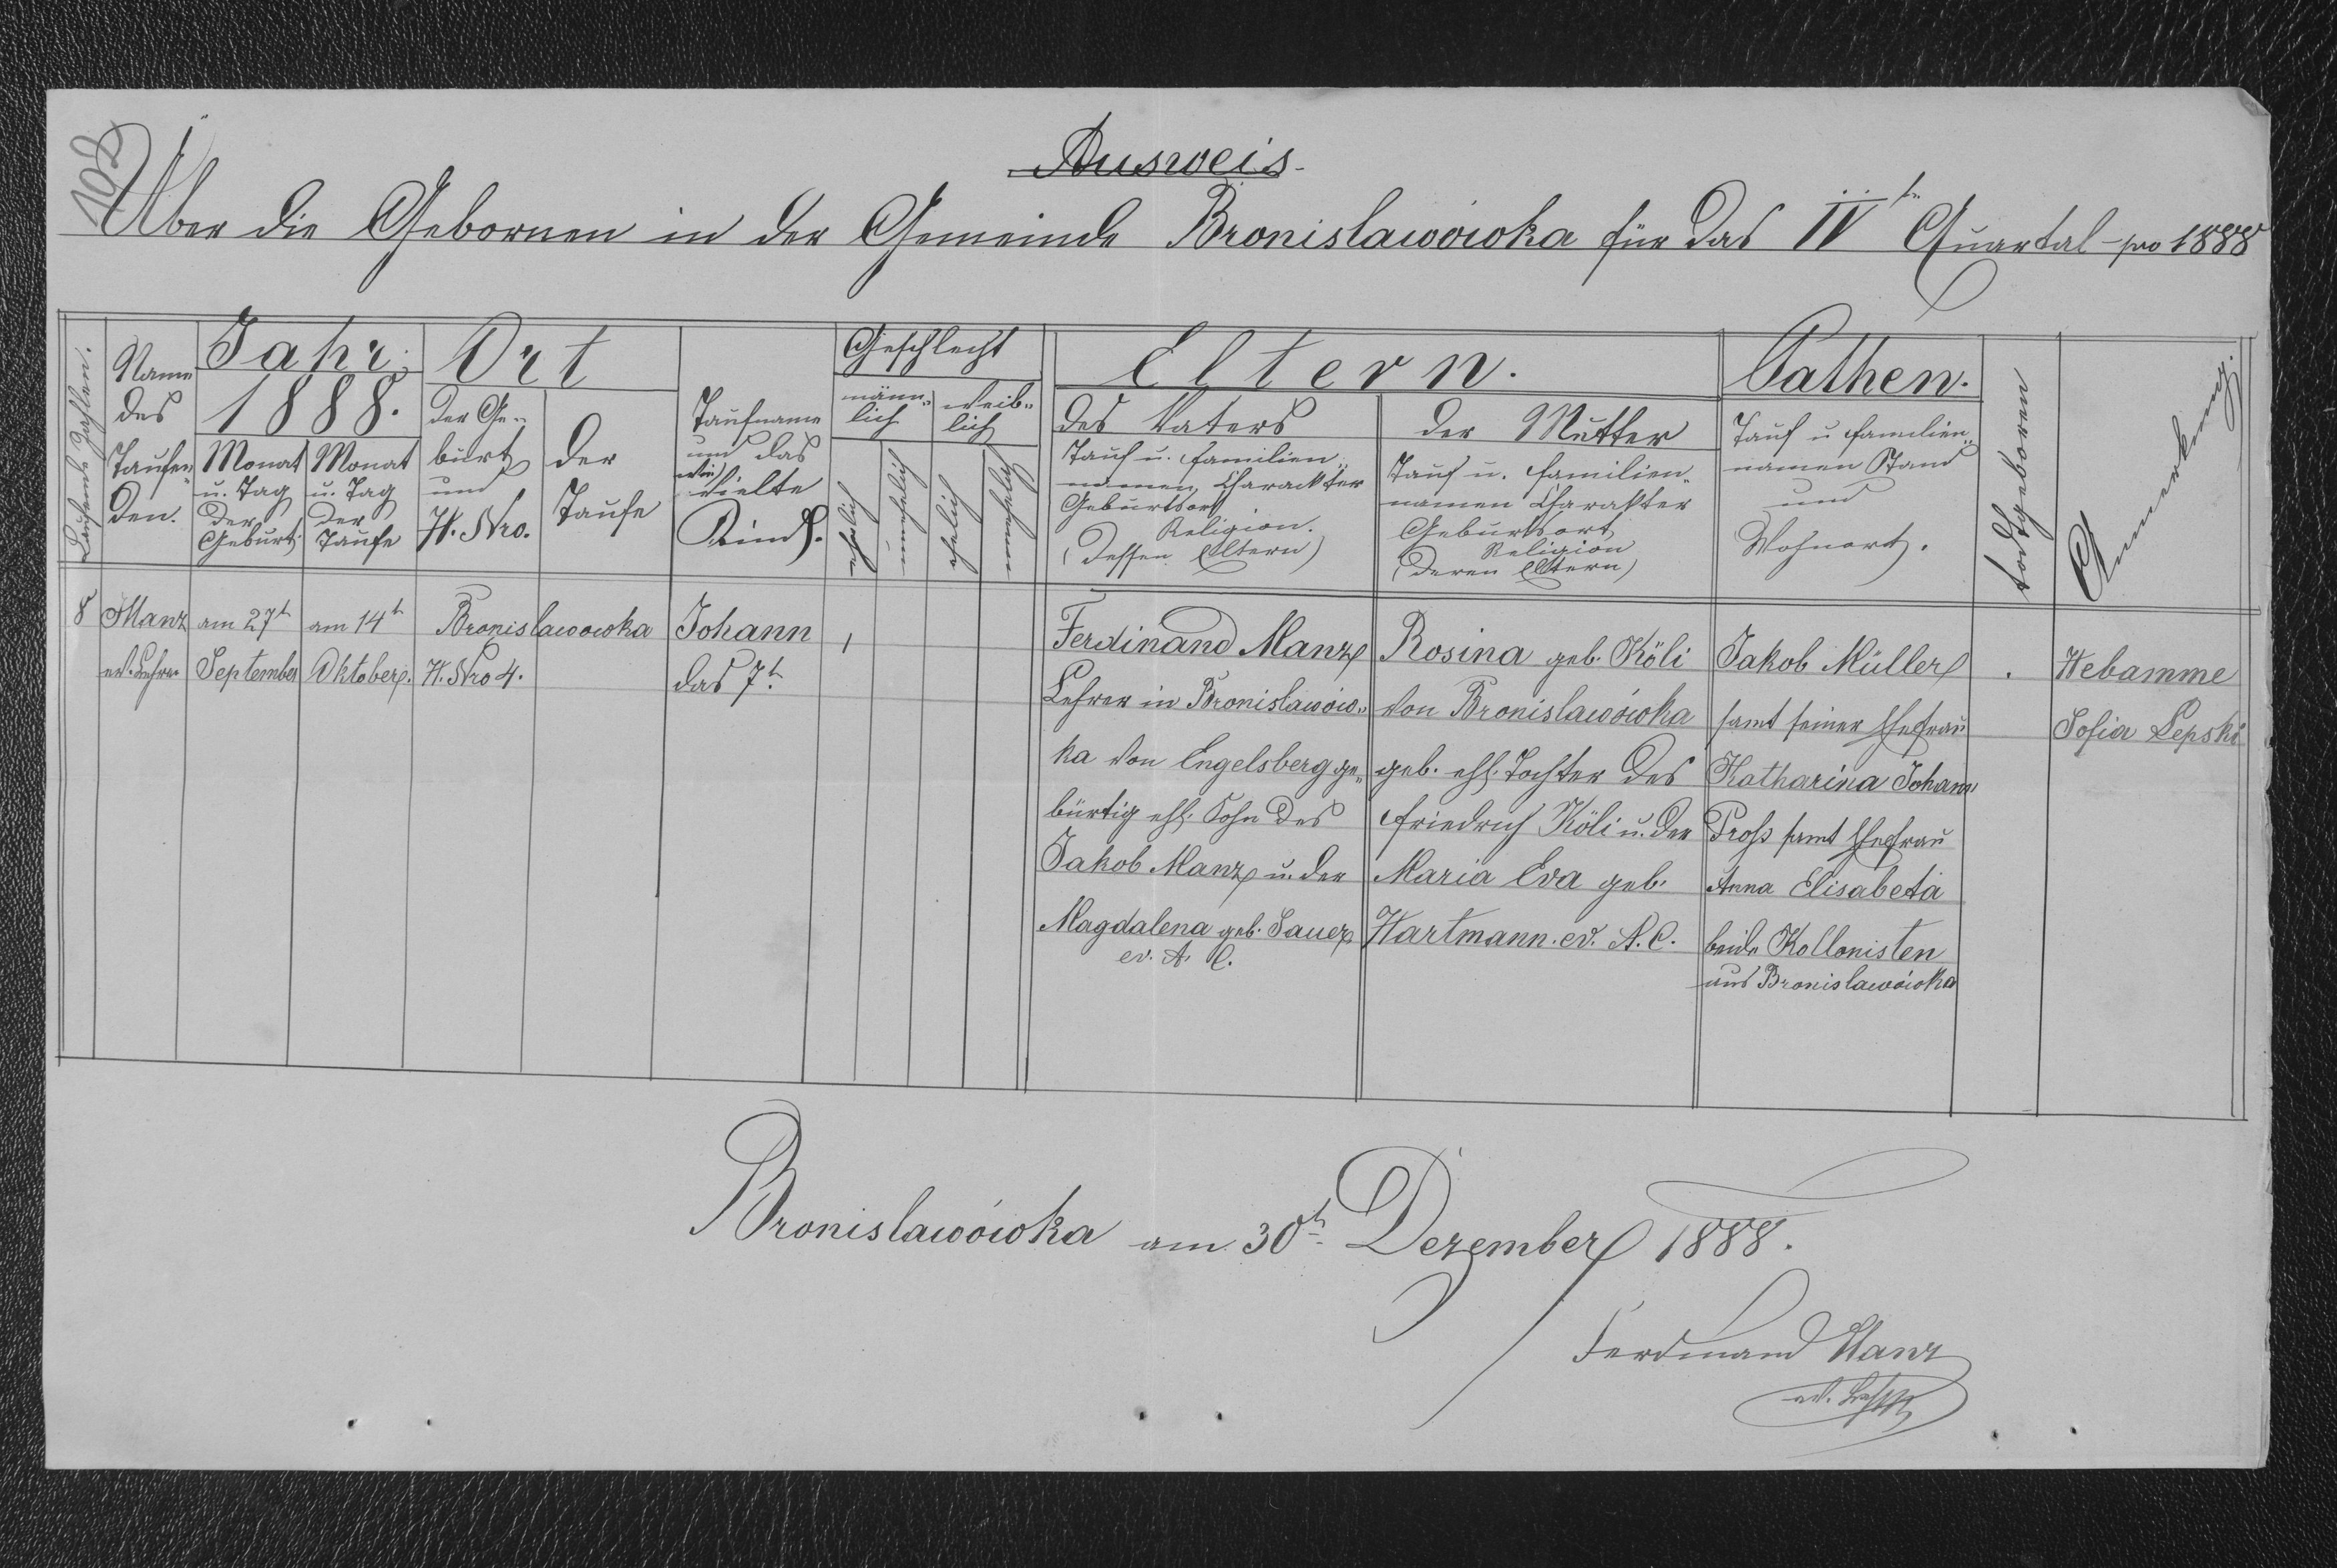 102
Ausweis
Über die Gebornen in der Gemeinde Bronislawówka für das IVte Quartal pro 1888
Laufende Zahlen.
Name
des
Taufen-
den.
Jahr
1888.
Monat
u. Tag
der
Geburt
Monat
u. Tag
der
Taufe
Ort
der Ge-
burt
und
H. Nro.
der
Taufe
Taufname
und das
wie
vielte
Kind.
Geschlecht
männ-
lich
weib-
lich
ehelich
unehelich
ehelich
unehelich
Eltern.
des Vaters
Tauf u. Familien-
namen, Charackter
Geburtsort
Religion.
(dessen Eltern)
der Mutter
Tauf u. Familien-
namen Charakter
Geburtsort
Religion
(deren Eltern)
Pathen.
Tauf u Familien-
namen Stand
und
Wohnort.
todtgeboren
Anmerkung.
8
Manz
ev. Lehrer
am 27t
September
am 14t
Oktober.
Bronislawowka
H. Nro 4.
Johann
das 7t.
1
Ferdinand Manz
Lehrer in Bronislawów-
ka von Engelsberg ge-
bürtig ehl. Sohn des
Jakob Manz u. der
Magdalena geb. Sauer
ev. A. C.
Rosina geb. Köli
von Bronislawówka
geb. ehl. Tochter des
Friedrich Köli u. der
Maria Eva geb.
Hartmann. ev. A. C.
Jakob Müller
samt seiner Ehefrau
Katharina Johann
Proß samt Ehefrau
Anna Elisabeta
beide Kollonisten
aus Bronislawówka
.
Hebamme
Sofia Lepski
Bronislawówka am 30t Dezember 1888.
Ferdinand Manz
ev. Lehrer